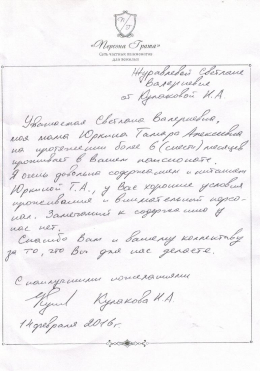 «Персона Грата»
Сеть частных пансионатов
для пожилых
Журавлевой Светлане
Валерьевне
от Кулаковой Н.А
Уважаемая Светлана Валерьевна,
моя мама Юркина Тамара Алексеевна
на протяжении более 6 (шести) месяцев
проживает в Вашем пансионате.
Я очень довольна содержанием и питанием
Юркиной Т.А., у Вас хорошие условия
проживания и внимательный персо-
нал. Замечаний к содержанию у
нас нет.
Спасибо Вам и вашему коллективу
за то, что Вы для нас делаете.
С наилучшими пожеланиями
Кулакова Н.А
14 февраля 2016г.